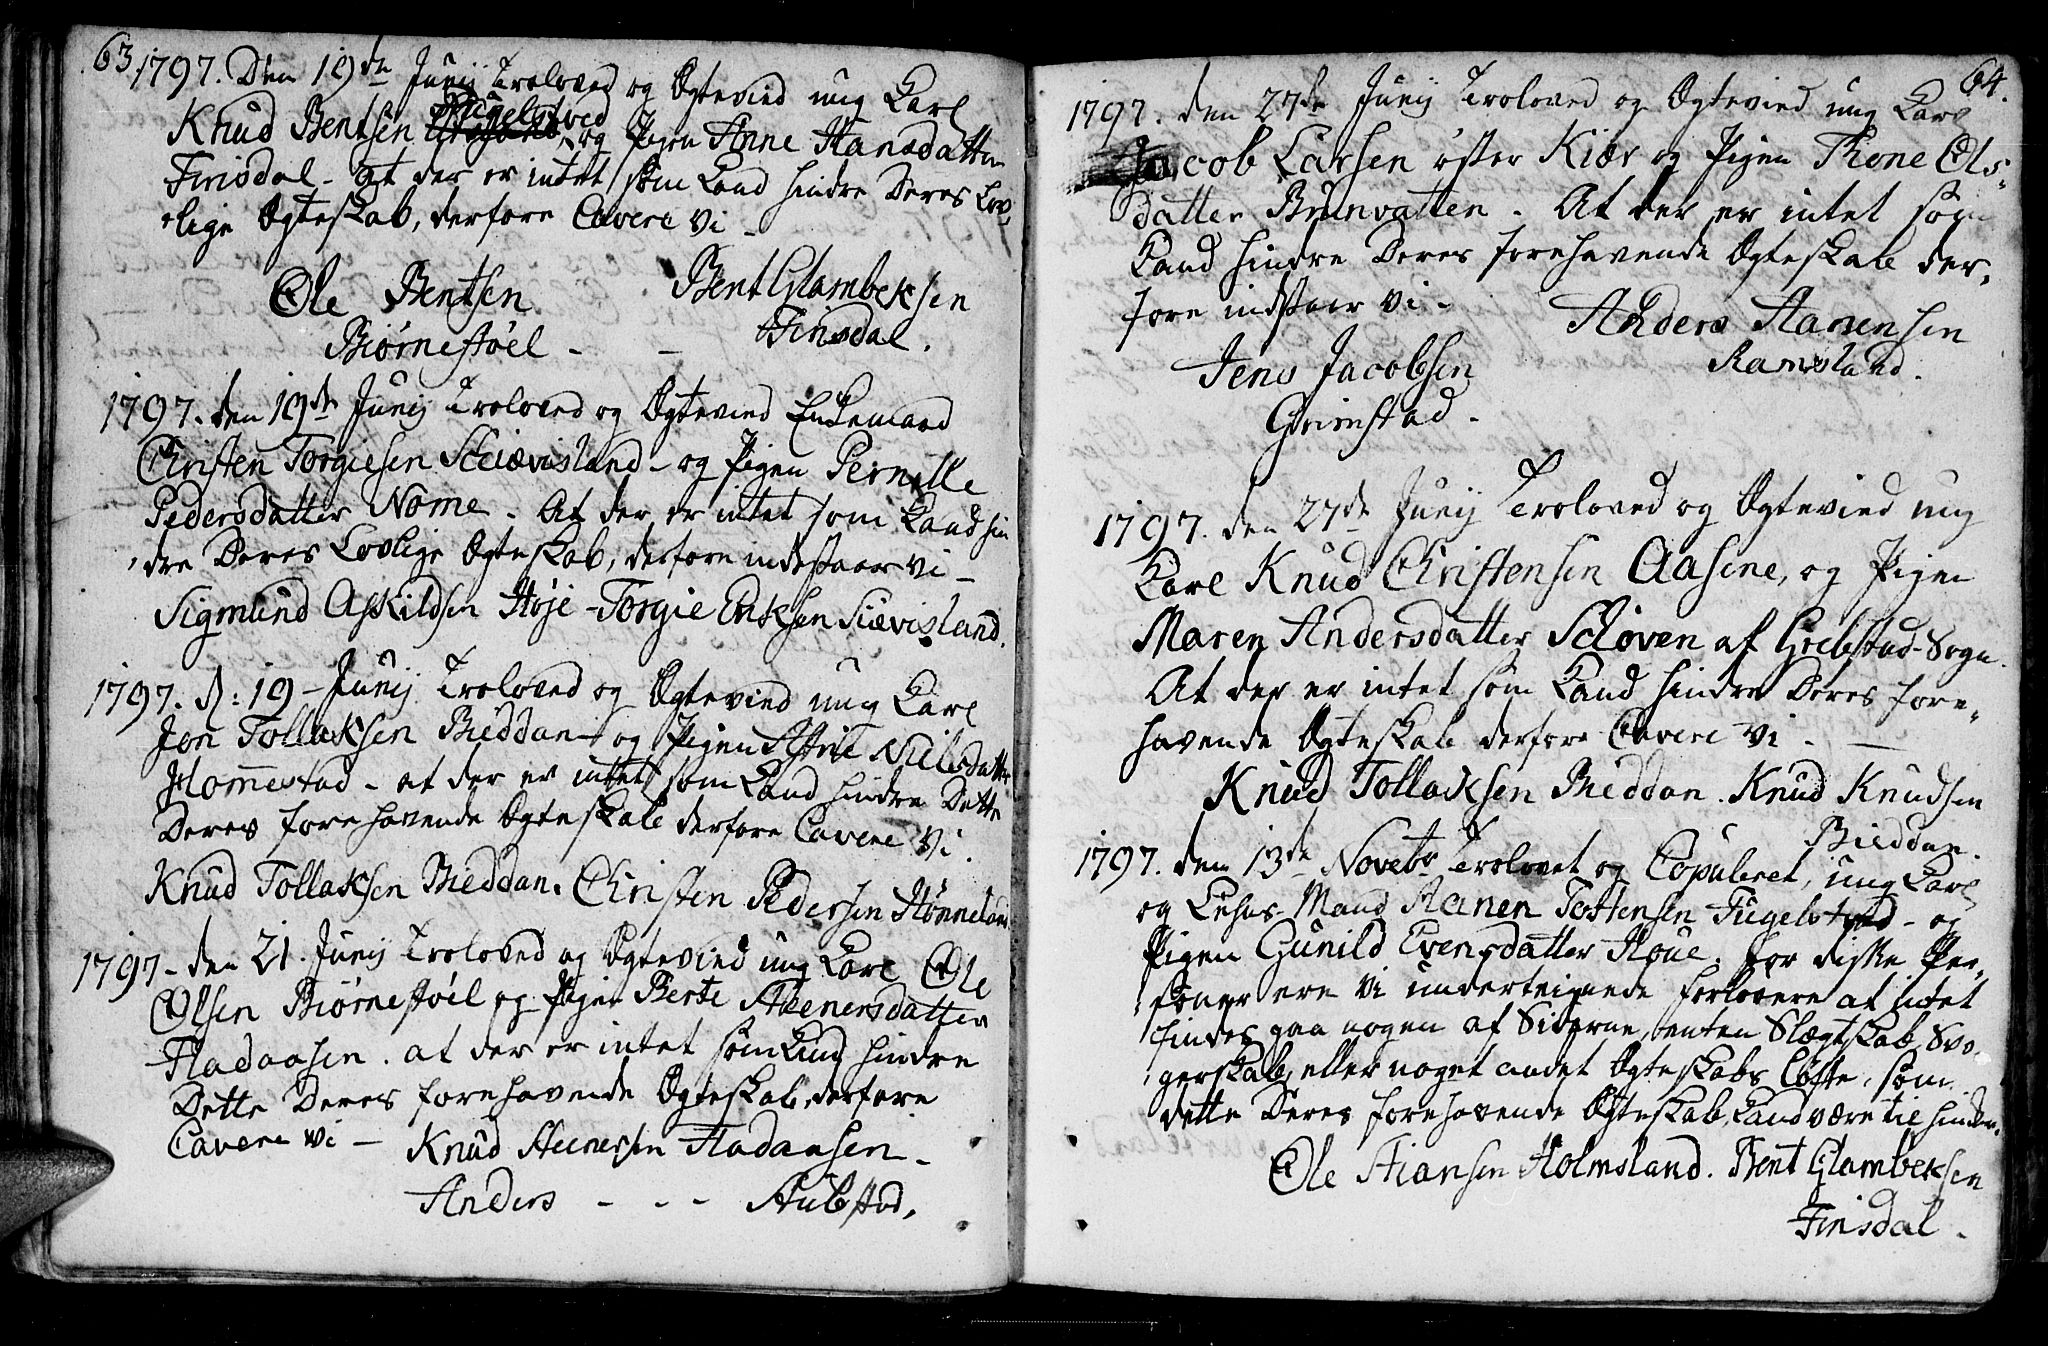 63.
1797. Den 19de Junij Troloved og Ægtevied ung Karl
Knud Bentsen Fugelstved, og Pigen Anne Hansdatter
Finsdal - At der er intet som kand hindre Deres Lov-
lige Ægteskab, derfore Cavere vi -
Ole Bentsen Bent Glambeksen
Biørnestøel - - Finsdal.
1797. den 19de Junij Troloved og Ægtevied Enkemand
Christen Torgiesen Schiævisland - og Pigen Pernille
Pedersdatter Nome - At der er intet som kand hin
dre Deres Lovlige Ægteskab, derfore indestaar vi -
Sigmund Askildsen Høje - Torgie Eriksen Siævisland.
1797. d: 19 - Junij Troloved og Ægtevied ung Karl
Jon Tollaksen Bieddan - og Pigen Nielsdatter
Homestad - at der er intet som kand hindre Dette
Deres forehavende Ægteskab derfore Cavere vi.
Knud Tollaksen Bieddan. Christen Pedersen Hønneland
1797 - den 21. Junij Troloved og Ægtevied ung Karl Ole
Olsen Biørnestøel og Pigen Berte Steenersdatter
Fladaasen. at der er intet som kand hindre
Dette Deres forehavende Ægteskab, derfore
Cavere vi - Knud Steenersen Fladaasen -
Anders - - - Stubstad.
64.
1797. den 27de Junij Troloved og Ægtevied ung Karl
Jacob Larsen øster Kiær og Pigen Thone Ols-
datter Brunvatten - At der er intet som
kand hindre Deres forehavende Ægteskab der-
fore indstaar vi -
Anders Aanensen
Jens Jacobsen Ramsland.
Grimstad -
1797. den 27de Junij Troloved og Ægtevied ung
Karl Knud Christensen Aasene, og Pigen
Maren Andersdatter Schoven af Greibstad-Sogn.
At der er intet som kand hindre Deres fore-
havende Ægteskab derfore Cavere vi -
Knud Tollaksen Bieddan. Knud Knudsen
Bieddan.
1797. den 13de Novebr Trolovet og Copuleret, ung Karl
og Lehns-Mand Aanen Tostensen Fugelstved - og
Pigen Gunild Evensdatter Houe. For diske Per-
soner ere vi undertegnede Forlovere at intet
findes paa nogen af Siderne, enten Slægtskab, Svo-
gerskab, eller noget andet Ægteskabs Løfte, som
dette Deres forehavende Ægteskab, kand være til hinder.
Ole Stiansen Holmsland. Bent Glambeksen
Finsdal -